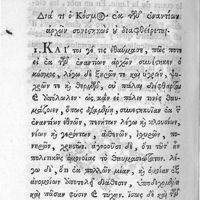 Διὰ τί ὁ Κόσμος ἐκ τῶν ἐναντίων
ἀρχῶν συνεστηκὼς οὐ διαφθείρεται.
1. ΚΑΙ τοι γέ τις ἐθαύμασε, πῶς ποτε
εἰ ἐκ τῶν ἐναντίων ἀρχῶν συνεστηκὼς ὁ
κόσμος, λέγω δὲ ξηροῦ τε καὶ ὑγροῦ, ψυχροῦ
τε καὶ θερμοῦ, οὐ πάλαι διέφθαρται
καὶ ἀπόλωλεν· ὡς κἂν εἰ πόλιν τινὲς θαυμάζοιεν,
ὅπως διαμένει, συνεστηκυῖα ἐκ τῶν
ἐναντίων ἐθνῶν, πενήτων λέγω καὶ πλουσίων,
νέων καὶ γερόντων, ἀσθενῶν, ἰσχυρῶν, πονηρῶν,
χρηστῶν. ἀγνοοῦσι δὲ, ὅτι τοῦτ' ἦν
πολιτικῆς ὁμονοίας τὸ θαυμασιώτατον. λέγω
δὲ, ὅτι ἐκ πολλῶν μίαν, καὶ ὁμοίαν ἐξ
ἀνομοίων ἀποτελεῖ διάθεσιν,
πᾶσαν φύσιν καὶ τύχην.